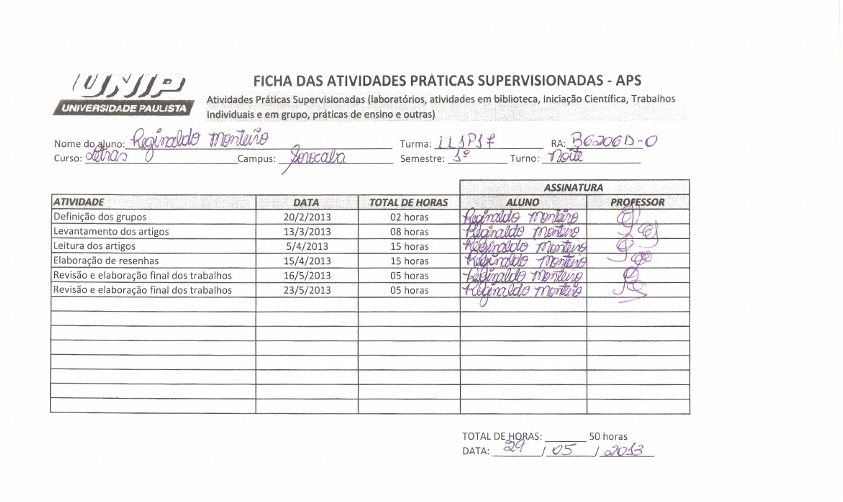 UNIP
UNIVERSIDADE PAULISTA
FICHA DAS ATIVIDADES PRÁTICAS SUPERVISIONADAS - APS
Atividades Práticas Supervisionadas (laboratórios, atividades em biblioteca, Iniciação Científica, Trabalhos
Individuais e em grupo, práticas de ensino e outras)
Nome do aluno: Reginaldo Monteiro Turma: LL1P1F RA: B6206D-0
Curso: Letras Campus: Sorocaba Semestre: 1º Turno: Noite
ASSINATURA
ATIVIDADE DATA TOTAL DE HORAS ALUNO PROFESSOR
Definição dos grupos 20/2/2013 02 horas Reginaldo Monteiro
Levantamento dos artigos 13/3/2013 08 horas Reginaldo Monteiro
Leitura dos artigos 5/4/2013 15 horas Reginaldo Monteiro
Elaboração de resenhas 15/4/2013 15 horas Reginaldo Monteiro
Revisão e elaboração final dos trabalhos 16/5/2013 05 horas Reginaldo Monteiro
Revisão e elaboração final dos trabalhos 23/5/2013 05 horas Reginaldo Monteiro
TOTAL DE HORAS: 50 horas
DATA: 29 / 05 / 2013